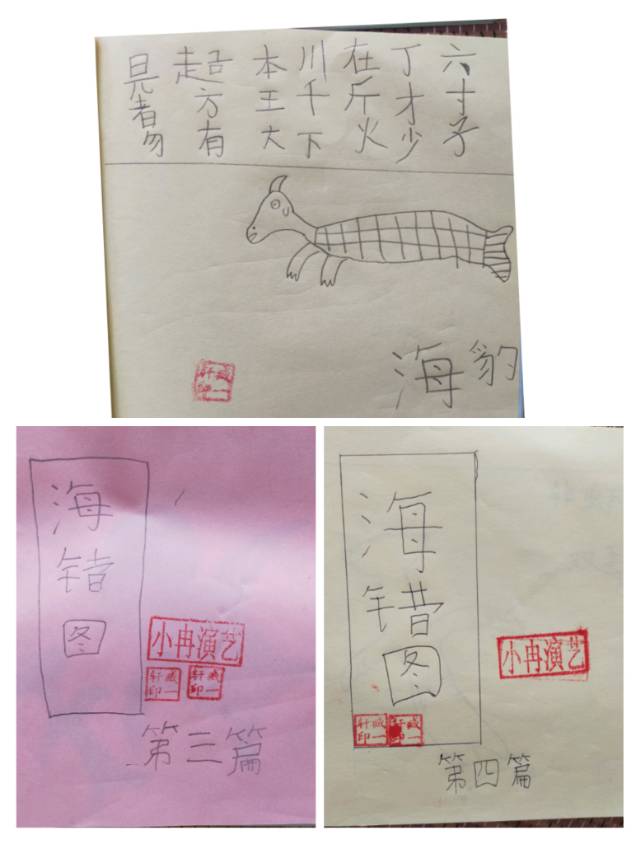 六寸子
丁才少
在斤火
川千下
本王大
方有
者勿
海豹
一轩印
海
错
图
小冉演艺
一轩印
一轩印
第三篇
海
错
图
小冉演艺
一轩印
一轩印
第四篇